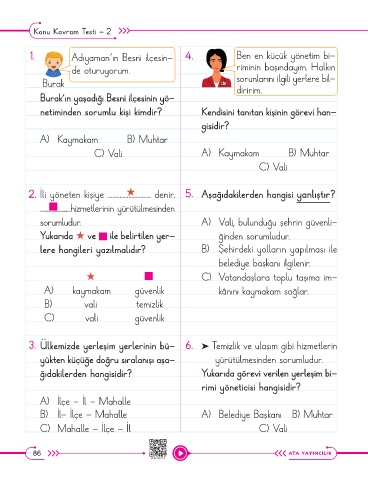 Konu Kavram Testi - 2
1.
Adıyaman'ın Besni ilçesin-
de oturuyorum.
Burak
Burak'ın yaşadığı Besni ilçesinin yö-
netiminden sorumlu kişi kimdir?
A) Kaymakam B) Muhtar
C) Vali
2. İli yöneten kişiye ........................ denir.
..................hizmetlerinin yürütülmesinden
sorumludur.
Yukarıda ★ ve ■ ile belirtilen yer-
lere hangileri yazılmalıdır?
★ ■
A) kaymakam güvenlik
B) vali temizlik
C) vali güvenlik
3. Ülkemizde yerleşim yerlerinin bü-
yükten küçüğe doğru sıralanışı aşa-
ğıdakilerden hangisidir?
A) İlçe - İl - Mahalle
B) İl- İlçe - Mahalle
C) Mahalle - İlçe - İl
4.
Ben en küçük yönetim bi-
riminin başındayım. Halkın
sorunlarını ilgili yerlere bil-
diririm.
Kendisini tanıtan kişinin görevi han-
gisidir?
A) Kaymakam B) Muhtar
C) Vali
5. Aşağıdakilerden hangisi yanlıştır?
A) Vali, bulunduğu şehrin güvenli-
ğinden sorumludur.
B) Şehirdeki yolların yapılması ile
belediye başkanı ilgilenir.
C) Vatandaşlara toplu taşıma im-
kânını kaymakam sağlar.
6. ➤ Temizlik ve ulaşım gibi hizmetlerin
yürütülmesinden sorumludur.
Yukarıda görevi verilen yerleşim bi-
rimi yöneticisi hangisidir?
A) Belediye Başkanı B) Muhtar
C) Vali
86
ATA YAYINCILIK